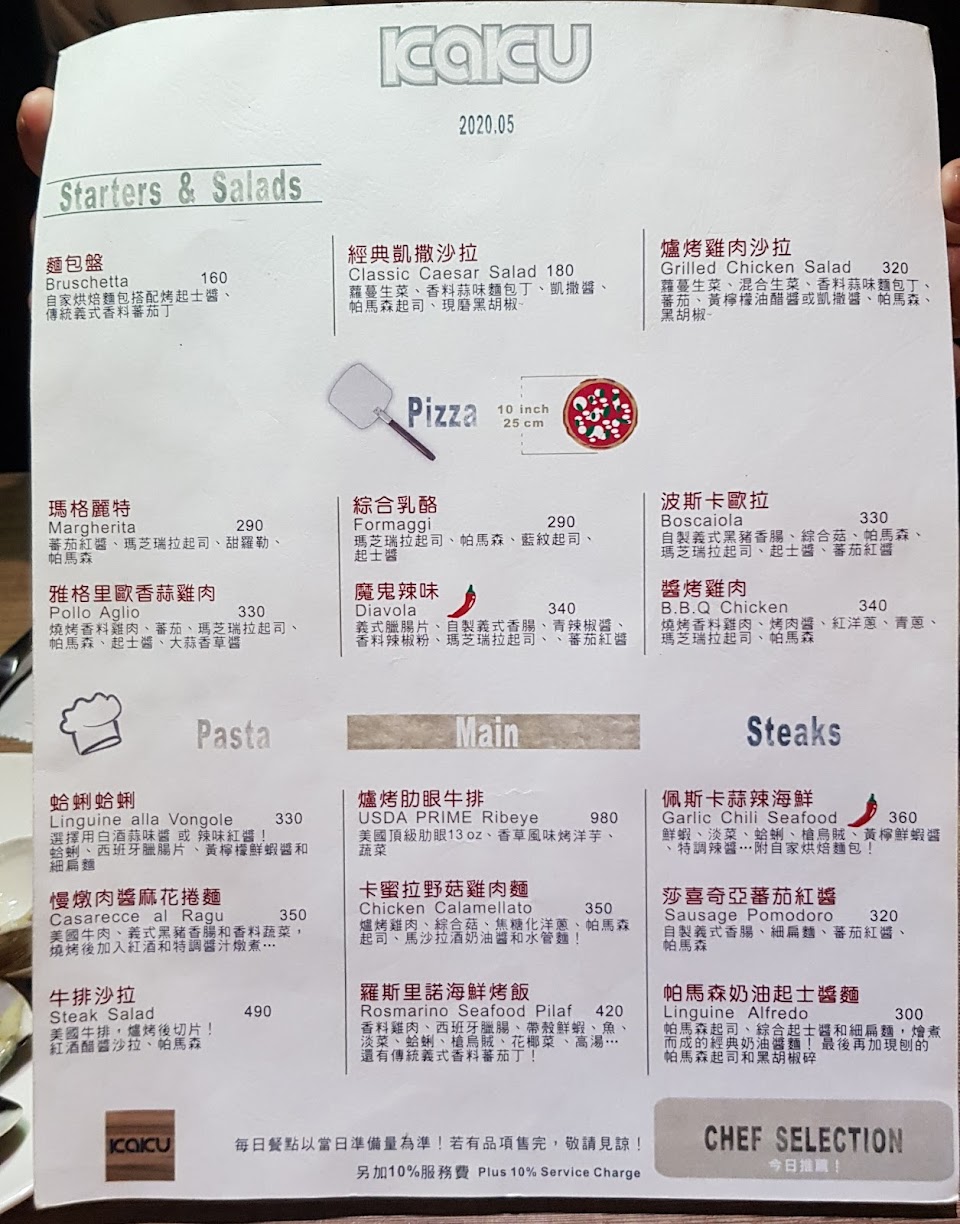 KAKU
2020.05
Starters & Salads
麵包盤
Bruschetta 160
自家烘焙麵包搭配烤起士醬、
傳統義式香料蕃茄丁
經典凱撒沙拉
Classic Caesar Salad 180
蘿蔓生菜、香料蒜味麵包丁、凱撒醬、
帕馬森起司、現磨黑胡椒~
爐烤雞肉沙拉
Grilled Chicken Salad 320
蘿蔓生菜、混合生菜、香料蒜味麵包丁、
蕃茄、黃檸檬油醋醬或凱撒醬、帕馬森、
黑胡椒~
Pizza
10 inch
25 cm
瑪格麗特
Margherita 290
蕃茄紅醬、瑪芝瑞拉起司、甜羅勒、
帕馬森
綜合乳酪
Formaggi 290
瑪芝瑞拉起司、帕馬森、藍紋起司、
起士醬
波斯卡歐拉
Boscaiola 330
自製義式黑豬香腸、綜合菇、帕馬森、
瑪芝瑞拉起司、起士醬、蕃茄紅醬
雅格里歐香蒜雞肉
Pollo Aglio 330
燒烤香料雞肉、蕃茄、瑪芝瑞拉起司、
帕馬森、起士醬、大蒜香草醬
魔鬼辣味
Diavola 340
義式臘腸片、自製義式香腸、青辣椒醬、
香料辣椒粉、瑪芝瑞拉起司、、蕃茄紅醬
醬烤雞肉
B.B.Q Chicken 340
燒烤香料雞肉、烤肉醬、紅洋蔥、青蔥、
瑪芝瑞拉起司、帕馬森
Pasta
Main
Steaks
蛤蜊蛤蜊
Linguine alla Vongole 330
選擇用白酒蒜味醬 或 辣味紅醬！
蛤蜊、西班牙臘腸片、黃檸檬鮮蝦醬和
細扁麵
爐烤肋眼牛排
USDA PRIME Ribeye 980
美國頂級肋眼13 oz、香草風味烤洋芋、
蔬菜
佩斯卡蒜辣海鮮
Garlic Chili Seafood 360
鮮蝦、淡菜、蛤蜊、槍烏賊、黃檸鮮蝦醬
、特調辣醬⋯附自家烘焙麵包！
慢燉肉醬麻花捲麵
Casarecce al Ragu 350
美國牛肉、義式黑豬香腸和香料蔬菜，
燒烤後加入紅酒和特調醬汁燉煮⋯
卡蜜拉野菇雞肉麵
Chicken Calamellato 350
爐烤雞肉、綜合菇、焦糖化洋蔥、帕馬森
起司、馬沙拉酒奶油醬和水管麵！
莎喜奇亞蕃茄紅醬
Sausage Pomodoro 320
自製義式香腸、細扁麵、蕃茄紅醬、
帕馬森
牛排沙拉
Steak Salad 490
美國牛排，爐烤後切片！
紅酒醋醬沙拉、帕馬森
羅斯里諾海鮮烤飯
Rosmarino Seafood Pilaf 420
香料雞肉、西班牙臘腸、帶殼鮮蝦、魚、
淡菜、蛤蜊、槍烏賊、花椰菜 、高湯⋯
還有傳統義式香料蕃茄丁！
帕馬森奶油起士醬麵
Linguine Alfredo 300
帕馬森起司、綜合起士醬和細扁麵，燴煮
而成的經典奶油醬麵！ 最後再加現刨的
帕馬森起司和黑胡椒碎
KAKU
每日餐點以當日準備量為準！若有品項售完，敬請見諒！
另加10%服務費 Plus 10% Service Charge
CHEF SELECTION
今日推薦！